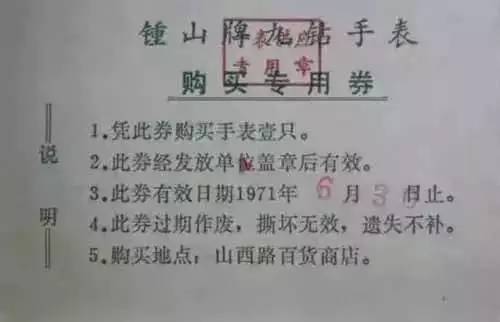 锺山牌九钻手表
专用章
购买专用券
说明
1.凭此券购买手表壹只。
2.此券经发放单位盖章后有效。
3.此券有效日期1971年 6 月 3 日止。
4.此券过期作废，撕坏无效，遗失不补。
5.购买地点：山西路百货商店。